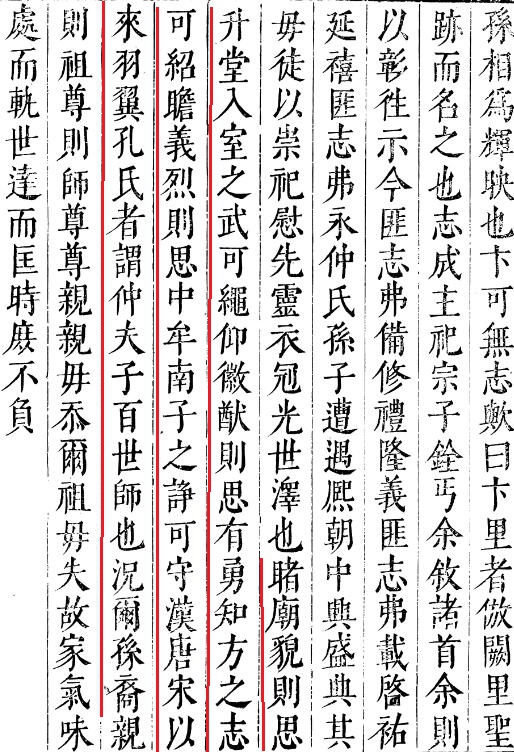 孫相爲輝映也卞可無志歟曰卞里者倣闕里聖
跡而名之也志成主祀宗子銓丐余敘諸首余則
以彰徃示今匪志弗備修禮隆義匪志弗載啓祐
延禧匪志弗永仲氏孫子遭遇熈朝中興盛典其
毋徒以崇祀慰先靈衣冠光世澤也睹廟貌則思
升堂入室之武可繩仰徽猷則思有勇知方之志
可紹瞻義烈則思中牟南子之諍可守漢唐宋以
來羽翼孔氏者謂仲夫子百世師也況爾孫裔親
則祖尊則師尊尊親親毋忝爾祖毋失故家氣味
處而軌世達而匡時庻不負